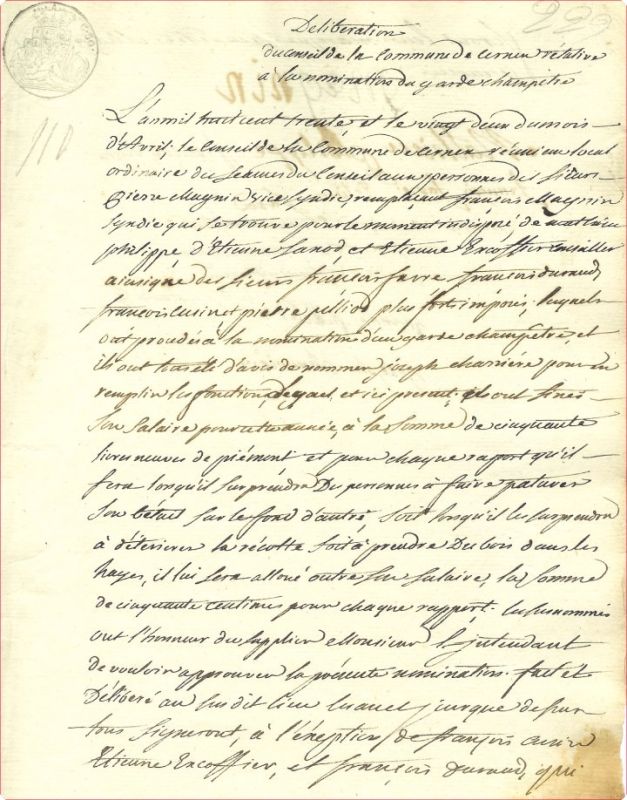 Délibération
du Conseil de la Commune de Cernex rélative
à la nomination du garde champêtre
L'an mil huit cent trente et le vingt deux du mois
d'Avril; le Conseil de la Commune de Cernex réuni au local
ordinaire des séances du Conseil aux personnes des Sieurs
Pierre Magnin vice syndic, remplaçant françois Magnin
syndic qui se trouve pour le moment indisposé, de
philippe d'Etienne Sanod, et Etienne Excoffier Conseiller
ainsi que des Sieurs françois favre françois durand,
françois Cusin et pierre pellion plus forts imposés, lesquels
ont procédés à la nomination d'un garde champêtre, et
ils ont tous été d'avis de nommer joseph charrière pour en
remplir les fonctions, lequel est ici présent; ils ont fixés
son salaire pour cette année, à la somme de cinquante
livres neuves de piémont et pour chaque raport qu'il
fera lorsqu'il surprendra des personnes à faire paturer
son bétail sur le fond d'autre, soit lorsqu'il les surprendra
à déteriorer la récolte soit à prendre du bois dans les
hayes, il lui sera alloué outre son salaire, la somme
de cinquante centimes pour chaque rapport. les susnommés
ont l'honneur de supplier Monsieur l'jntendant
de vouloir approuver la présente nomination. fait et
Délibéré au sus dit lieu lu avec jurque de
tous signeront, à l'éxception de françois cusin
Etienne Excoffier, et françois Durand, qui